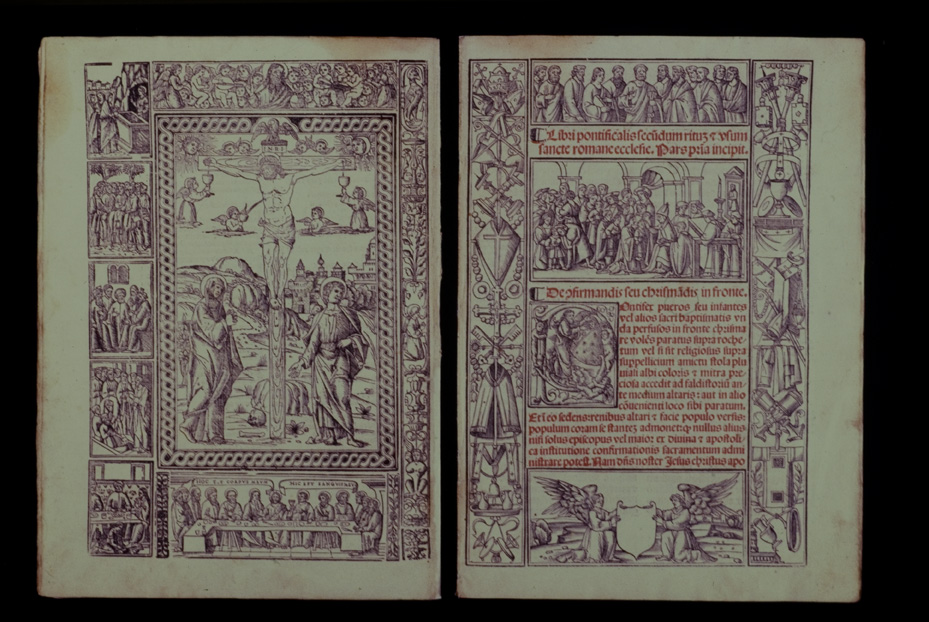 INRI
HOC E.S CORPVS MEVM
HIC EST SANGVIS MEVS
Libri pontificalis secūdum rituȝ ⁊ vsum
sancte romane ecclesie. Pars prīa incipit.
De ↄfirmandis seu chrismādis in fronte.
POntifex pueros seu infantes
vel alios sacri baptismatis vn
da perfusos in fronte chrisma
re volēs paratus supra roche-
tum vel si sit religiosus supra
suppellicium amictu stola plu
uiali albi coloris ⁊ mitra pre-
ciosa accedit ad faldistoriū an-
te medium altaris: aut in alio
cōuenienti loco sibi paratum.
Et ī eo sedens: renibus altari ⁊ facie populo versis:
populum coram se stanteȝ admonet: ꝙ nullus alius
nisi solus episcopus vel maior ex diuina ⁊ apostoli-
ca institutione confirmationis sacramentum admi
nistrare potest. Nam dn̄s noster Jesus christus apo